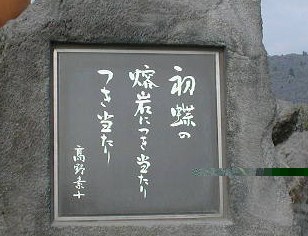 初蝶の
熔岩につき当たり
つき当たり
高野素十